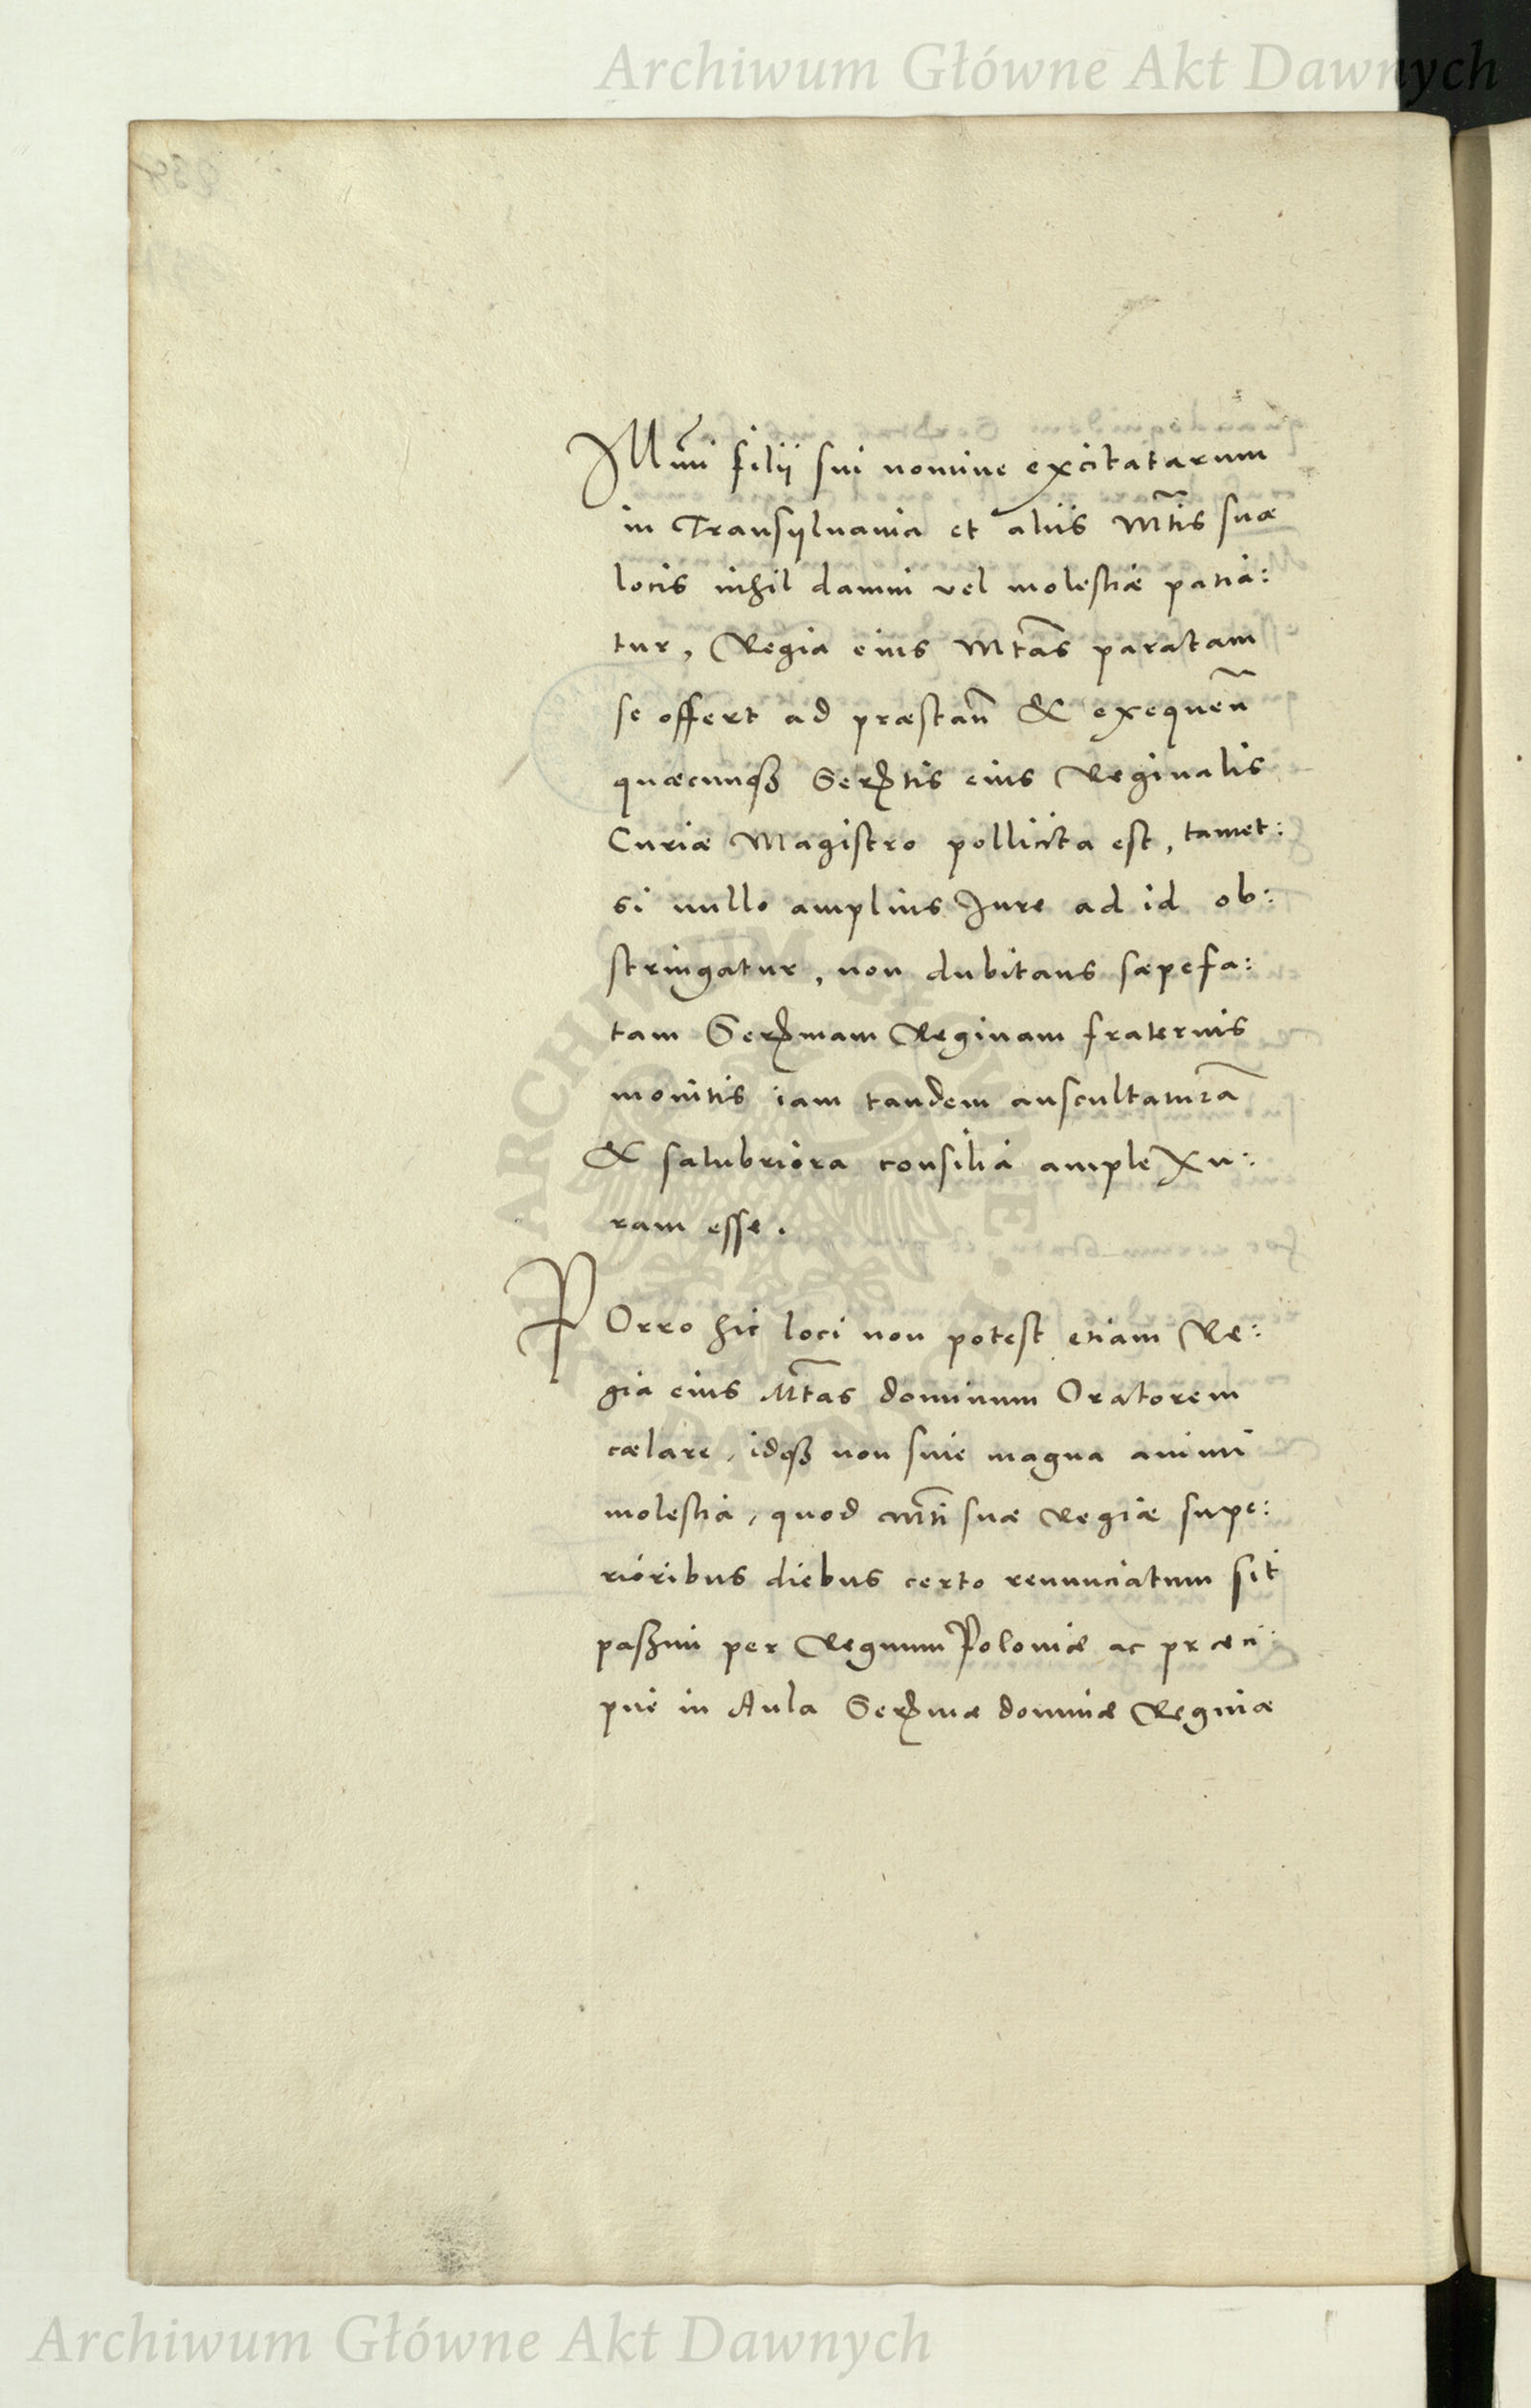 Archiwum Główne Akt Dawnych
Illmi filii sui nomine excitatarum
in Transylvania et aliis Mtis suæ
locis nihil damni vel molestiæ patia:
tur, Regia eius Mtas paratam
se offert ad præstan̄ & exequen̄
quæcunqȝ Serētis eius Reginalis
Curiæ Magistro pollicita est, tamet:
si nullo amplius Jure ad id ob:
stringatur, non dubitans sæpefa:
tam Serēmam Reginam fraternis
monitis iam tandem auscultaturā
& salubriora consilia amplexu:
ram esse.
POrro hic loci non potest etiam Re:
gia eius Mtas dominum Oratorem
cælare, idqȝ non sine magna animi
molestia, quod Mti suæ Regiæ supe:
rioribus diebus certo renunciatum sit
paßim per Regnum Poloniæ ac præci:
pue in Aula Serēmæ dominæ Reginæ
Archiwum Główne Akt Dawnych